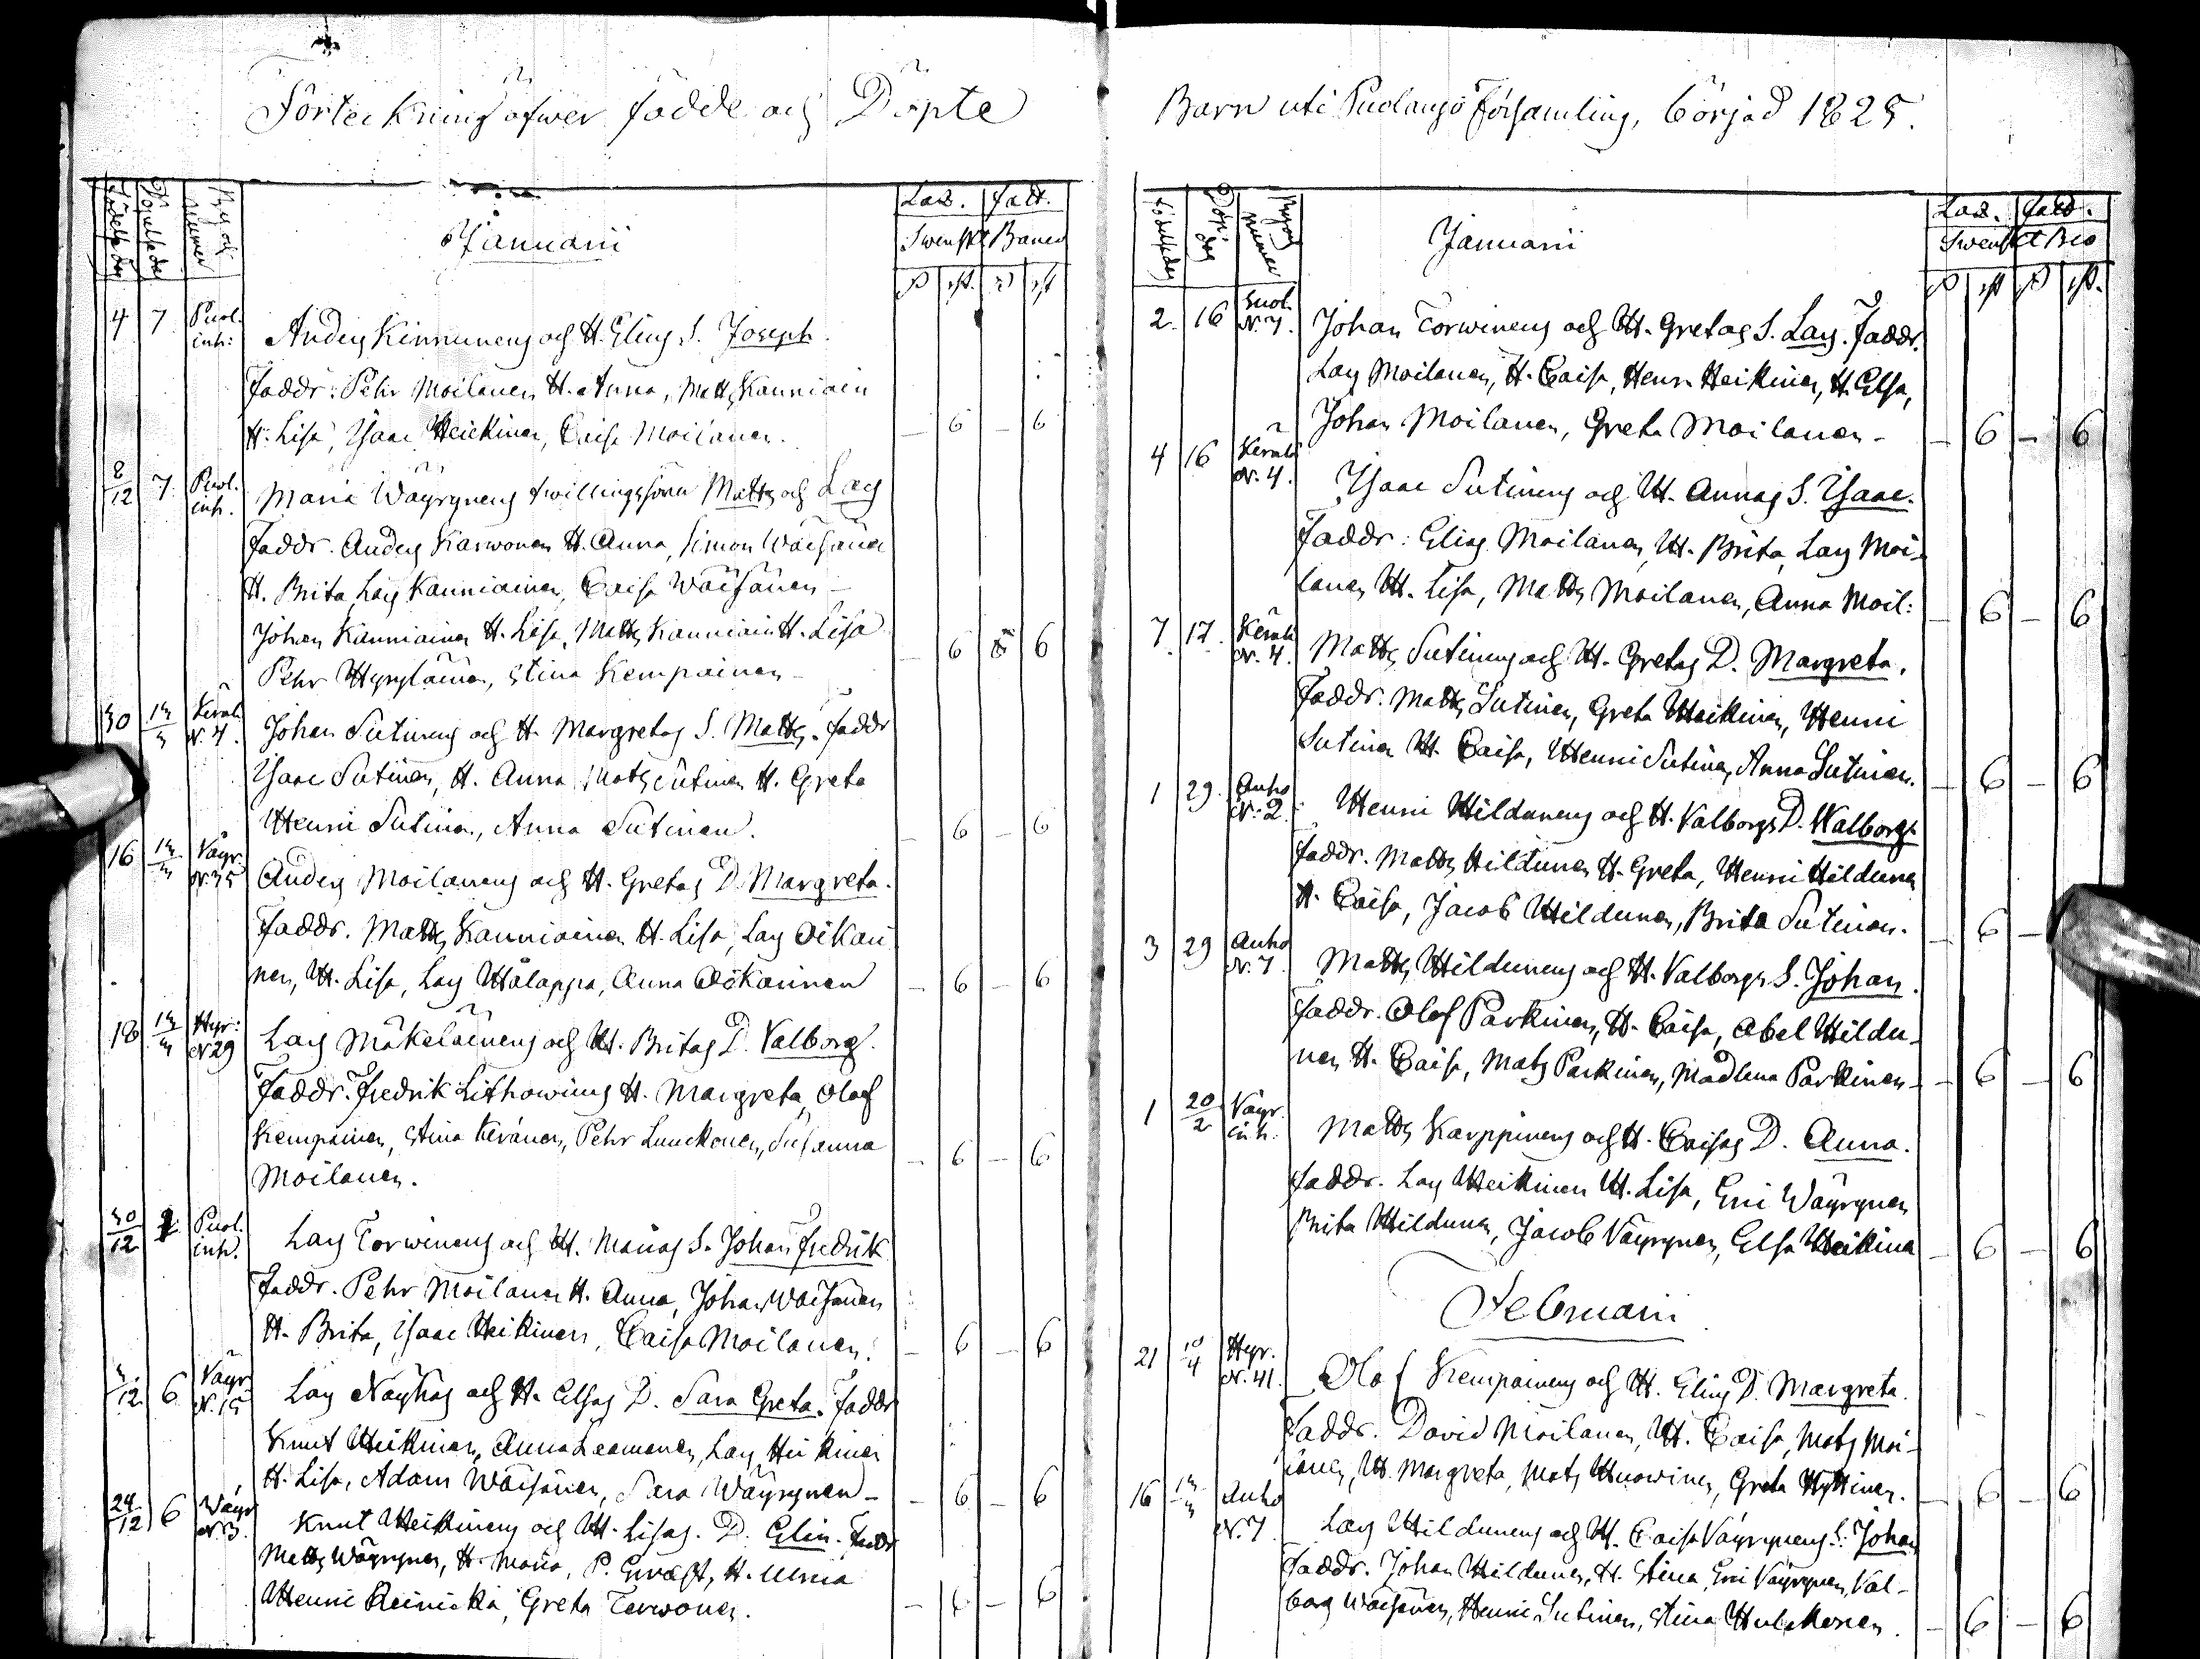 Förteckning öfwer födde och Döpte
Födelse dag Döpelse dag By och nummer
Januarii
Laz. fatt.
Swenskt Banco
4 7 Puol. inh: Anders Kinnunens och H. Elins S. Joseph.
Faddr: Pehr Moilanen H. Anna, Matts Kanniain
H. Lisa, Isaac Heickinen, Caisa Moilanen. – 6 – 6
8/12 7 Puol. inh. Maria Wäyrynens twillingssöner Matts och Lars
Faddr. Anders Karwonen H. Anna, Simon Wäisänen
H. Brita, Lars Kanniainen, Caisa Wäisänen –
Johan Kanniainen H. Lisa, Matts Kanniain H. Lisa – 6 6
Pehr Hyryläinen, Stina Kempainen –
30 13/3 N. 4. Johan Sutinens och H. Margretas S. Matts. Faddr
Isaac Sutinen, H. Anna, Mats Sutinen H. Greta
Henric Sutinen, Anna Sutinen. – 6 – 6
16 13/3 Väyr. N. 35 Anders Moilanens och H. Gretas D. Margreta.
Faddr. Matts Kanniainen H. Lisa, Lars Oikari
nen, H. Lisa, Lars Hälappa, Anna Oikarinen – 6 – 6
18 13/3 Hyr: N 29 Lars Mäkeläinens och H. Britas D. Valborg.
Faddr. Fredrik Lithowius H. Margreta, Olof
Kempainen, Stina Keränen, Pehr Lunckonen, Susanna – 6 – 6
Moilanen.
30/12 Puol. inh. Lars Torwinens och H. Marias S. Johan Fredrik
Faddr. Pehr Moilanen H. Anna, Johan Wäisänen
H. Brita, Isaac Heikinen, Caisa Moilanen. – 6 – 6
/12 6 Väyr N. 15 Lars Näyhäs och H. Elsas D. Sara Greta. Faddr
Knut Heikinen, Anna Leamanen, Lars Heikinen
H. Lisa, Adam Wäisänen, Sara Wäyrynen – – 6 – 6
24/12 6 Wäyr N. 3. Knut Heikinens och H. Lisas. D. Elin. Faddr
Matts Wäyrynen, H. Maria, P. H. Ulrica
Henric Reinicka, Greta Terwonen. – 6 – 6
Barn uti Puolangö Församling, börjad 1825.
Födelse dag Dop. dag By och nummer
Januarii
Laz. fatt.
Swenskt Bco
2. 16 Puol. N. 7. Johan Torwinens och H. Gretas S. Lars. Faddr.
Lars Moilanen, H. Caisa, Henr. Heikinen, H. Elsa,
Johan Moilanen, Greta Moilanen – – 6 – 6
4 16 N. 4. Isaac Sutinens och H. Annas S. Isaac.
Faddr: Elias Moilanen, H. Brita, Lars Moi-
lanen H. Lisa, Matts Moilanen, Anna Moil: – 6 – 6
7 17. N. 4. Matts Sutinens och H. Gretas D. Margreta.
Faddr. Matts Sutinen, Greta Heikinen, Henric
Sutinen H. Caisa, Henric Sutinen, Anna Sutinen. – 6 – 6
1 29. Auho N: 2. Henric Hildunens och H. Valborgs D. Walborg.
Faddr. Matts Hildunen H. Greta, Henric Hildunen
H. Caisa, Jacob Hildunen, Brita Sutinen. – 6 –
3 29 Auho N. 7. Matts Hildunens och H. Valborgs S. Johan.
Faddr. Olof Parkinen, H. Caisa, Abel Hildu-
nen H. Caisa, Mats Parkinen, Madlena Parkinen – – 6 – 6
1 20/2 Väyr. inh. Matts Karppinens och H. Caisas D. Anna.
Faddr. Lars Heikinen H. Lisa, Eric Wäyrynen
Brita Hildunen, Jacob Väyrynen, Elsa Heikinen – 6 – 6
Februarii
21 10/4 Hyr. N. 41. Olof Kempainens och H. Elins D. Margreta.
Faddr. David Moilanen, H. Caisa, Mats Moi-
lanen, H. Margreta, Mats Huowinen, Greta Hyttinen. – 6 – 6
16 13/3 Auho N. 7 Lars Hildunens och H. Caisa Väyrynens S: Johan
Faddr. Johan Hildunen, H. Stina, Eric Väyrynen, Val-
borg Wäisänen, Henric Sutinen, Stina Hulckonen. – 6 – 6